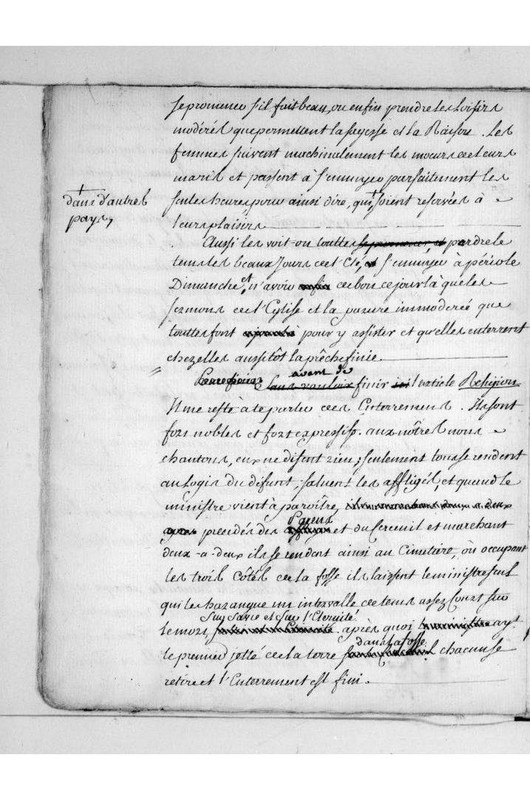 se promener s'il fait beau, ou enfin prendre les loisirs
modérés que permettent la sagesse et la Raison. Les
femmes suivent machinalement les moeurs de leurs
maris et passent à s'ennuyer parfaitement les
+ dans d'autres pays,
seules heures pour ainsi dire, qui + soient reservées à
leurs plaisirs
Aussi les voit on touttes perdre le
tems les beaux Jours de l'Eté, et s'ennuyer à périr le
Dimanche et n'avoir de bon ce jour là que les
sermons de l'Eglise et la parure immoderée que
touttes font pour y assister et qu'elles enterrent
chez elles aussitôt la prêche finie
avant de
finir l'article Religion
Il me reste à te parler des Enterremens. Ils sont
fort nobles et fort expressifs. aux nôtres nous
chantons, eux ne disent rien; seulement tous se rendent
au logis du défunt; saluent les affligés et quand le
ministre vient à paroître,
Parens
precédés des et du Cercueil et marchant
deux-a-deux ils se rendent ainsi au Cimetière, où occupant
les trois Côtés de la fosse ils laissent le ministre seul
qui les harangue un intervalle de tems assez Court sur
Sur Sare et Sur l'Eternité
le mort après quoi ayt
dans la fosse
le premier jetté de la terre chacun se
retire et l'Enterrement est fini.